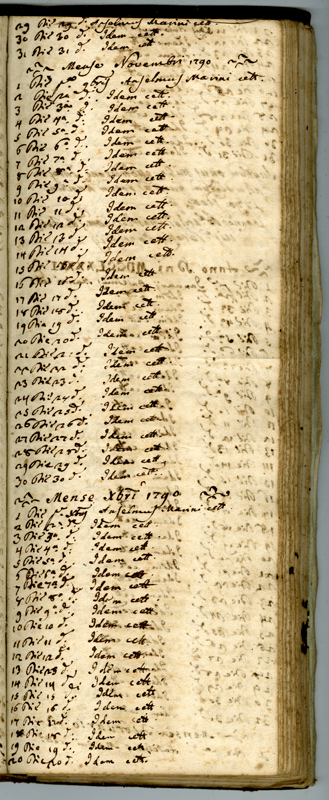 29 Die 29 d. Anselmus Marini cett.
30 Die 30 d. Idem cett.
31 Die 31 d. Idem cett.
Mense Novembri 1790
1 Die pma 9bris Anselmus Marini cett.
2 Die 2a d. Idem cett.
3 Die 3a d. Idem cett.
4 Die 4a d. Idem cett.
5 Die 5a d. Idem cett.
6 Die 6a d. Idem cett.
7 Die 7a d. Idem cett.
8 Die 8a d. Idem cett.
9 Die 9 d. Idem cett.
10 Die 10 d. Idem cett.
11 Die 11 d. Idem cett.
12 Die 12 d. Idem cett.
13 Die 13 d. Idem cett.
14 Die 14 d. Idem cett.
15 Die 15 d. Idem cett.
16 Die 16 d. Idem cett.
17 Die 17 d. Idem cett.
18 Die 18 d. Idem cett.
19 Die 19 d. Idem cett.
20 Die 20 d. Idem cett.
21 Die 21 d. Idem cett.
22 Die 22 d. Idem cett.
23 Die 23 d. Idem cett.
24 Die 24 d. Idem cett.
25 Die 25 d. Idem cett.
26 Die 26 d. Idem cett.
27 Die 27 d. Idem cett.
28 Die 28 d. Idem cett.
29 Die 29 d. Idem cett.
30 Die 30 d. Idem cett.
Mense Xbri 1790
1 Die pa Xbris Anselmus Marini cett
2 Die 2a d. Idem cett
3 Die 3a d. Idem cett.
4 Die 4a d. Idem cett
5 Die 5a d. Idem cett.
6 Die 6a d. Idem cett
7 Die 7a d. Idem cett
8 Die 8a d. Idem cett
9 Die 9a d. Idem cett.
10 Die 10 d. Idem cett.
11 Die 11 d. Idem cett
12 Die 12 d. Idem cett
13 Die 13 d. Idem cett.
14 Die 14 d. Idem cett
15 Die 15 d. Idem cett.
16 Die 16 d. Idem cett
17 Die 17 d. Idem cett
18 Die 18 d. Idem cett.
19 Die 19 d. Idem cett.
20 Die 20 d. Idem cett.